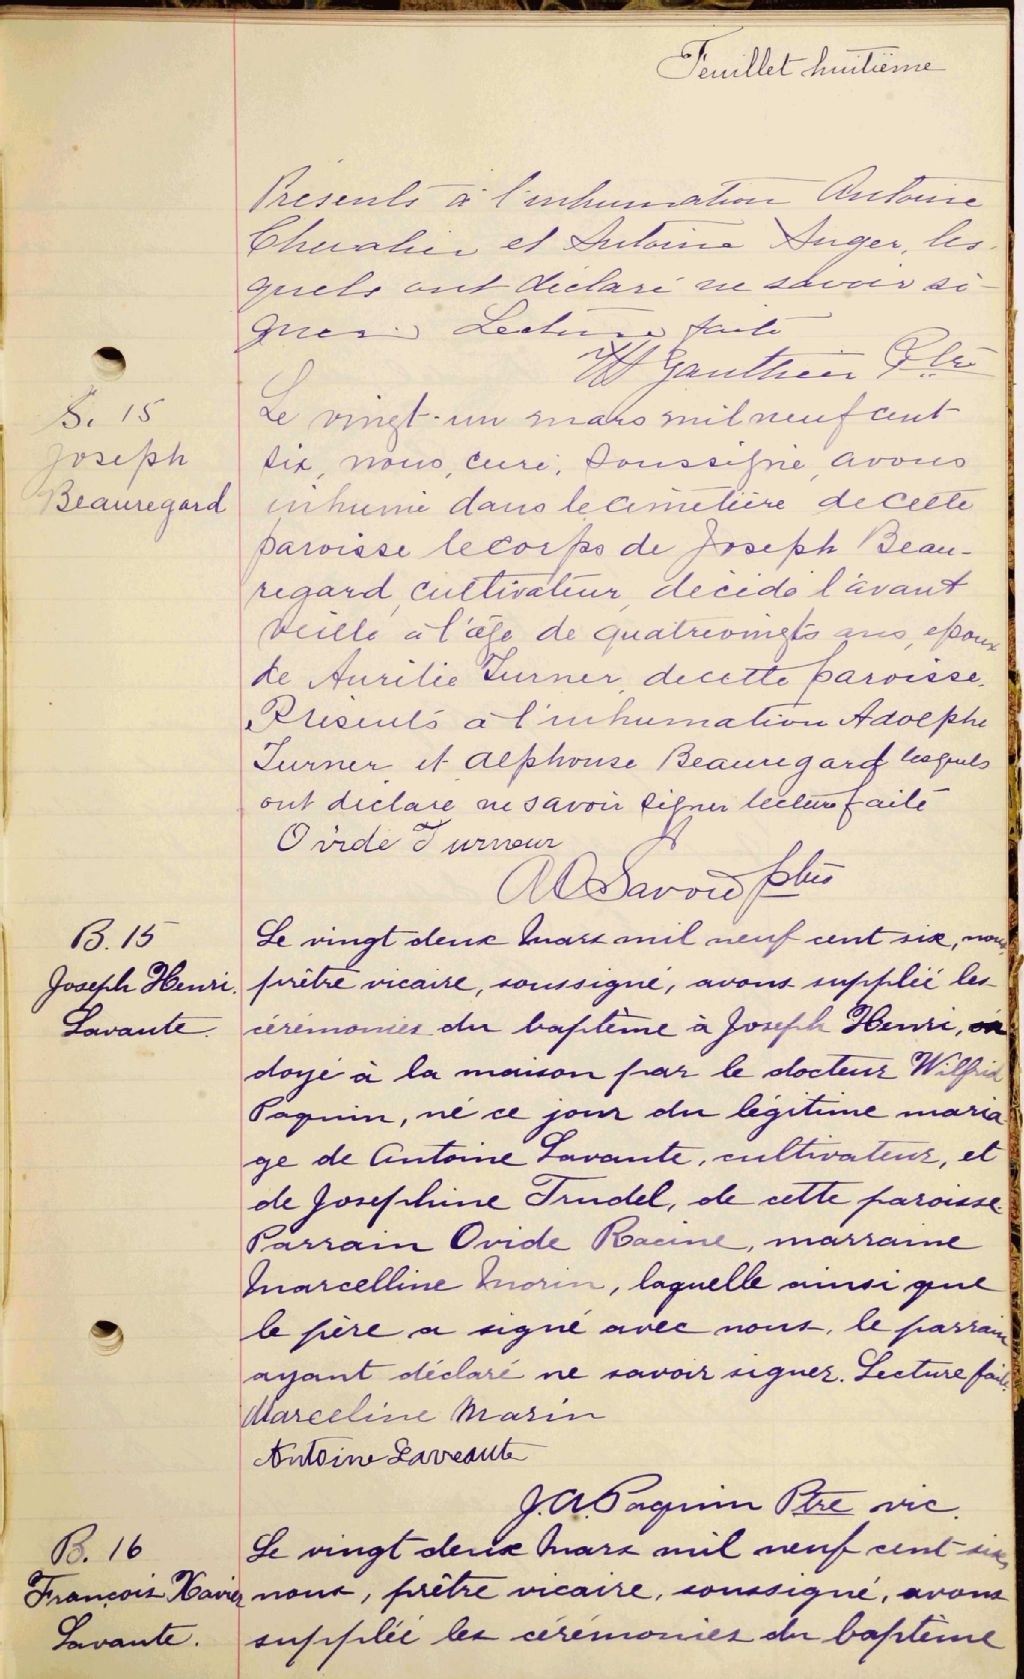 Feuillet huitième
Présents à l'inhumation Antoine
Chevalier et Antoine Auger, les-
quels ont déclaré ne savoir si-
gner. Lecture faite
Gauthier Ptre
S. 15
Joseph
Beauregard
Le vingt-un mars mil neuf cent
six, nous, curé, soussigné, avons
inhumé dans le cimetière de cette
paroisse le corps de Joseph Beau-
regard, cultivateur, décédé l'avant
veille à l'âge de quatrevingts ans, époux
de Aurélie Turner, de cette paroisse.
Présents à l'inhumation Adolphe
Turner et Alphonse Beauregard lesquels
ont déclaré ne savoir signer lecture faite
Ovide Turneur
Savoie ptre
B. 15
Joseph Henri
Lavante.
Le vingt deux Mars mil neuf cent six, nous,
prêtre vicaire, soussigné, avons supplié les
cérémonies du baptême à Joseph Henri, on
doyé à la maison par le docteur Wilfrid
Paquin, né ce jour du légitime maria
ge de Antoine Lavante, cultivateur, et
de Josephine Trudel, de cette paroisse.
Parrain Ovide Racine, marraine
Marcelline Morin, laquelle ainsi que
le père a signé avec nous, le parrain
ayant déclaré ne savoir signer. Lecture faite.
Marceline Marin
Antoine Laveaute
J.A. Paquin Ptre vic.
B. 16
François Xavier
Lavante.
Le vingt deux Mars mil neuf cent six,
nous, prêtre vicaire, soussigné, avons
supplée les cérémonies du baptême